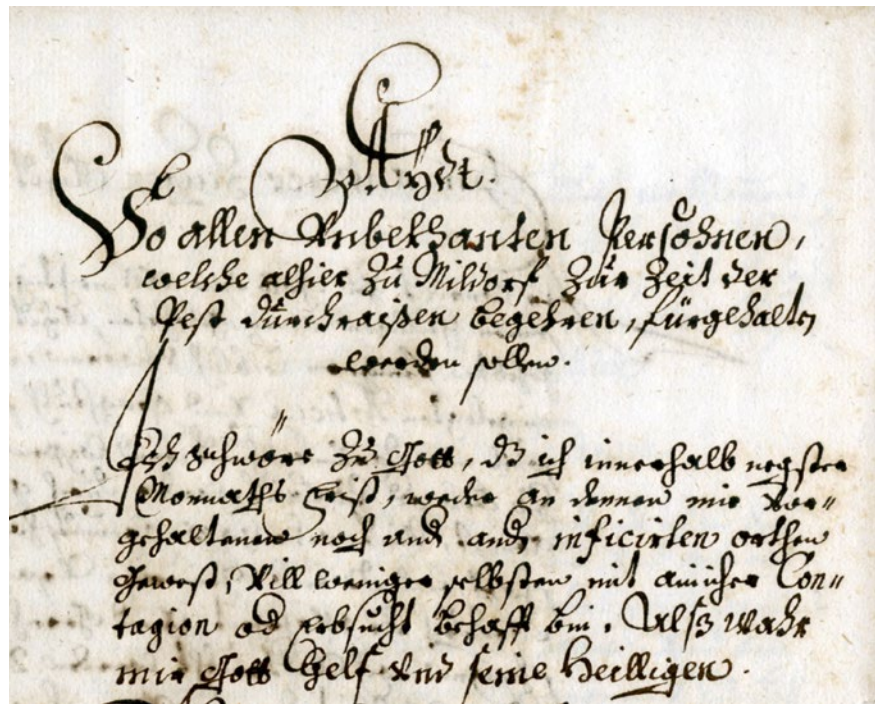 Aydt
So allen Unbekhanten Persohnen,
welche alhier zu Mildorf zur Zeit der
Pest durchraißen begehren, fürgehalten
werden sollen.
Ich schwöre zu Gott, dz ich innerhalb negster
Monnaths Frist, weder an denen mir vor-
gehaltenen noch and. inficirten orthen
gewest, Vill weniger selbsten mit ainicher Con-
tagion od Erbsucht behafft bin. Alß wahr
mir Gott helf und seine Heilligen.